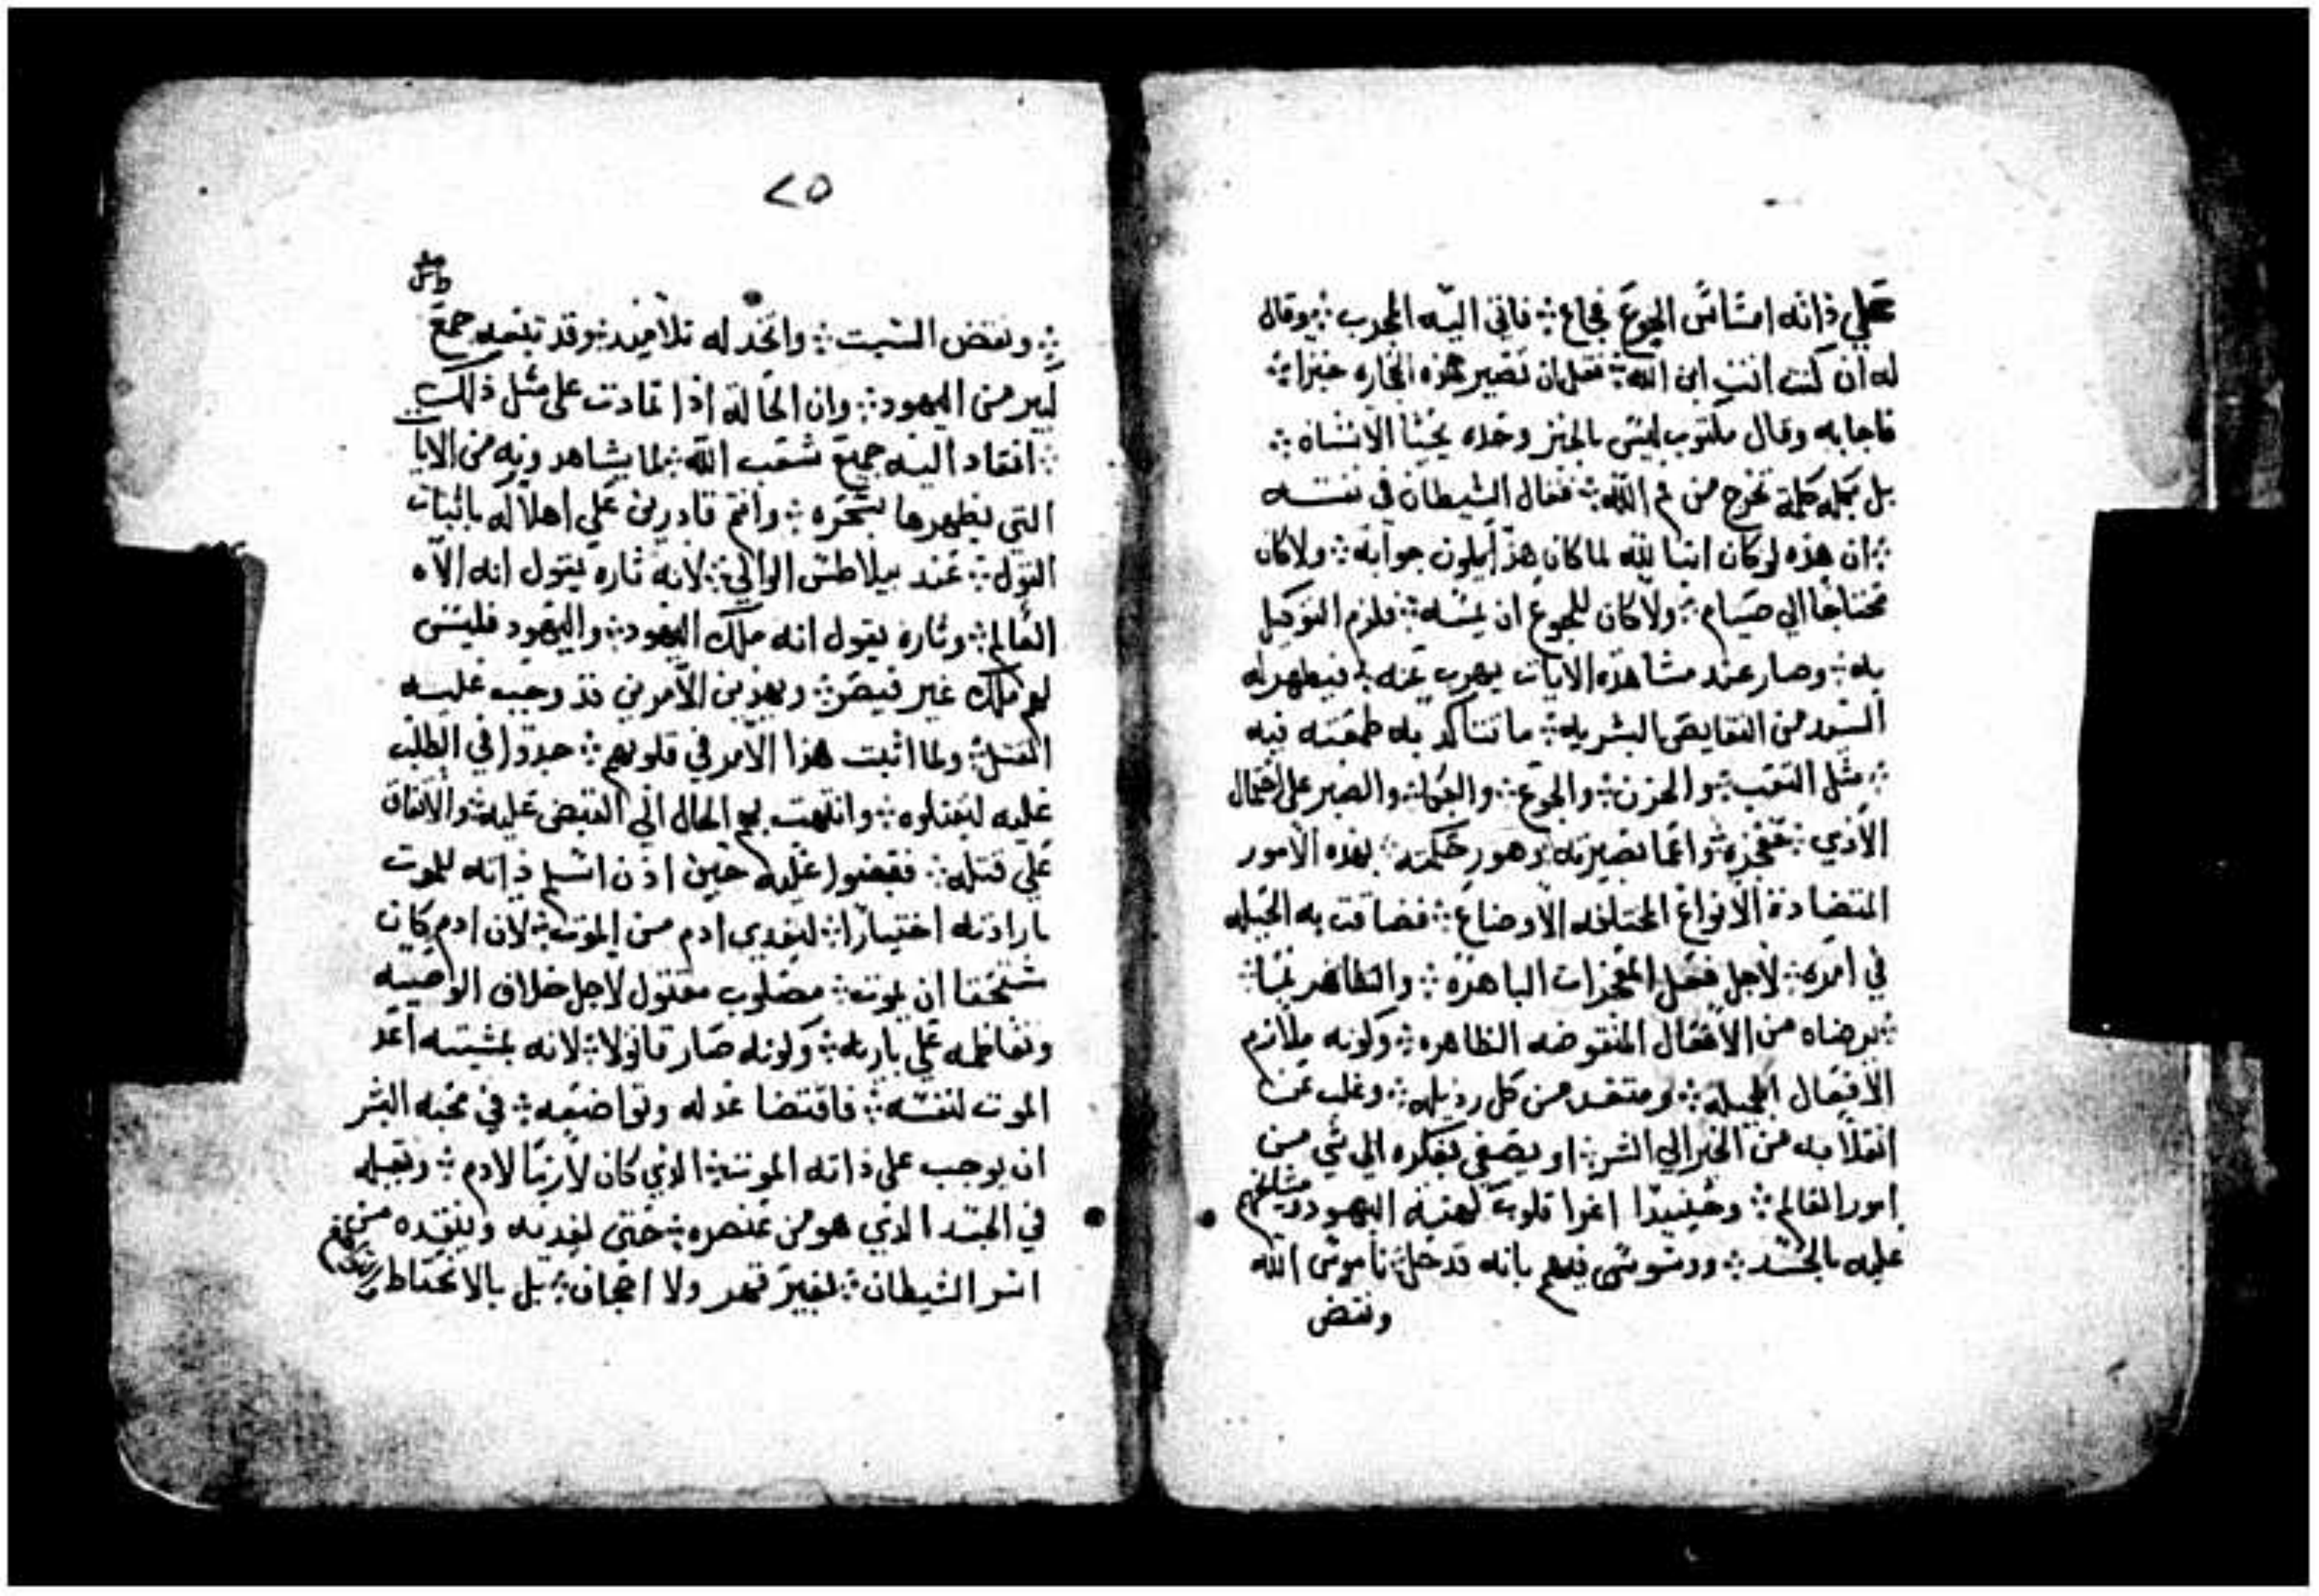 علي ذاته امساس الجوع فجاع ፨ فاتي اليه المجرب ፨ وقال
له ان كنت انت ابن الله ፨ فقل ان تصير هذه الحجاره خبزا ፨
فاجابه وقال مكتوب ليس بالخبز وحده يحيا الانسان ፨
بل بكل كلمة تخرج من فم الله ፨ فقال الشيطان في نفسه
፨ ان هذه لو كان ابنا لله لما كان هذا يكون جوابه ፨ ولا كان
محتاجا الي صيام ፨ ولا كان للجوع ان يمسه ፨ فلزم التوكيل
به ፨ وصار عند مشاهدة الايات يهرب عنه ፨ فيظهر له
السيد من النقايص البشريه ፨ ما تتاكد به طمعته فيه
፨ مثل التعب ፨ والحزن ፨ والجوع ፨ والبكا ፨ والصبر على احتمال
الاذي ፨ فعجزه ፨ واعما بصيرته وهور حكمته ፨ بهذه الامور
المتضادة الانواع المختلفه الاوضاع ፨ فضاقت به الحيله
في امره ፨ لاجل فعل المعجزات الباهرة ፨ والتظاهر
፨ برضاه من الافعال المنقوضه الظاهره ፨ وكونه ملازم
الافعال الجميلة ፨ ومتبعد من كل رذيله ፨ وغلب عن
انقلابه من الخير الي الشر ፨ او يصغي بفكره الي شي من
امور العالم ፨ وحينيدا اغرا قلوب كهنة اليهود ومشايخهم
عليه بالحسد ፨ ووسوس فيهم بانه قد حل ناموس الله
ونقض
٢٥
፨ ونقض السبت ፨ واتخد له تلاميد ፨ وقد تبعه جمع
كبير من اليهود ፨ وان الحالة اذا تمادت على مثل ذلك
፨ انقاد اليه جميع شعب الله ፨ لما يشاهدونه من الايا
التي يظهرها بسحره ፨ وانتم قادرين علي اهلاكه باثبات
القول ፨ عند بيلاطس الوالي ፨ لانه تاره يقول انه الاه
العالم ፨ وتاره يقول انه ملك اليهود ፨ واليهود فليس
لهم ملك غير قيصر ፨ وبهذين الامرين قد وجب عليه
القتل ፨ ولما اثبت هذا الامر في قلوبهم ፨ جدوا في الطلب
عليه ليقتلوه ፨ وانتهت بهم الحال الي القبض عليه ፨ والاتفاق
علي قتله ፨ فقبضوا عليه حين اذن اسلم ذاته للموت
بارادته اختيارا ፨ ليفدي ادم من الموت ፨ لان ادم كان
مستحقا ان يموت ፨ مصلوب مقتول لاجل خلاف الوصيه
وتعاظمه علي باريه ፨ وكونه صار قاتولا ፨ لانه بمشيته اعد
الموت لنفسه ፨ فاقتضا عدله وتواضعه ፨ في محبه البشر
ان يوجب على ذاته الموت ፨ الذي كان لازما لادم ፨ ويقبله
في الجسد الذي هو من عنصره ፨ حتى يفديه وينقده من
اسر الشيطان ፨ بغير قهر ولا اجحاف ፨ بل بالاتحاط